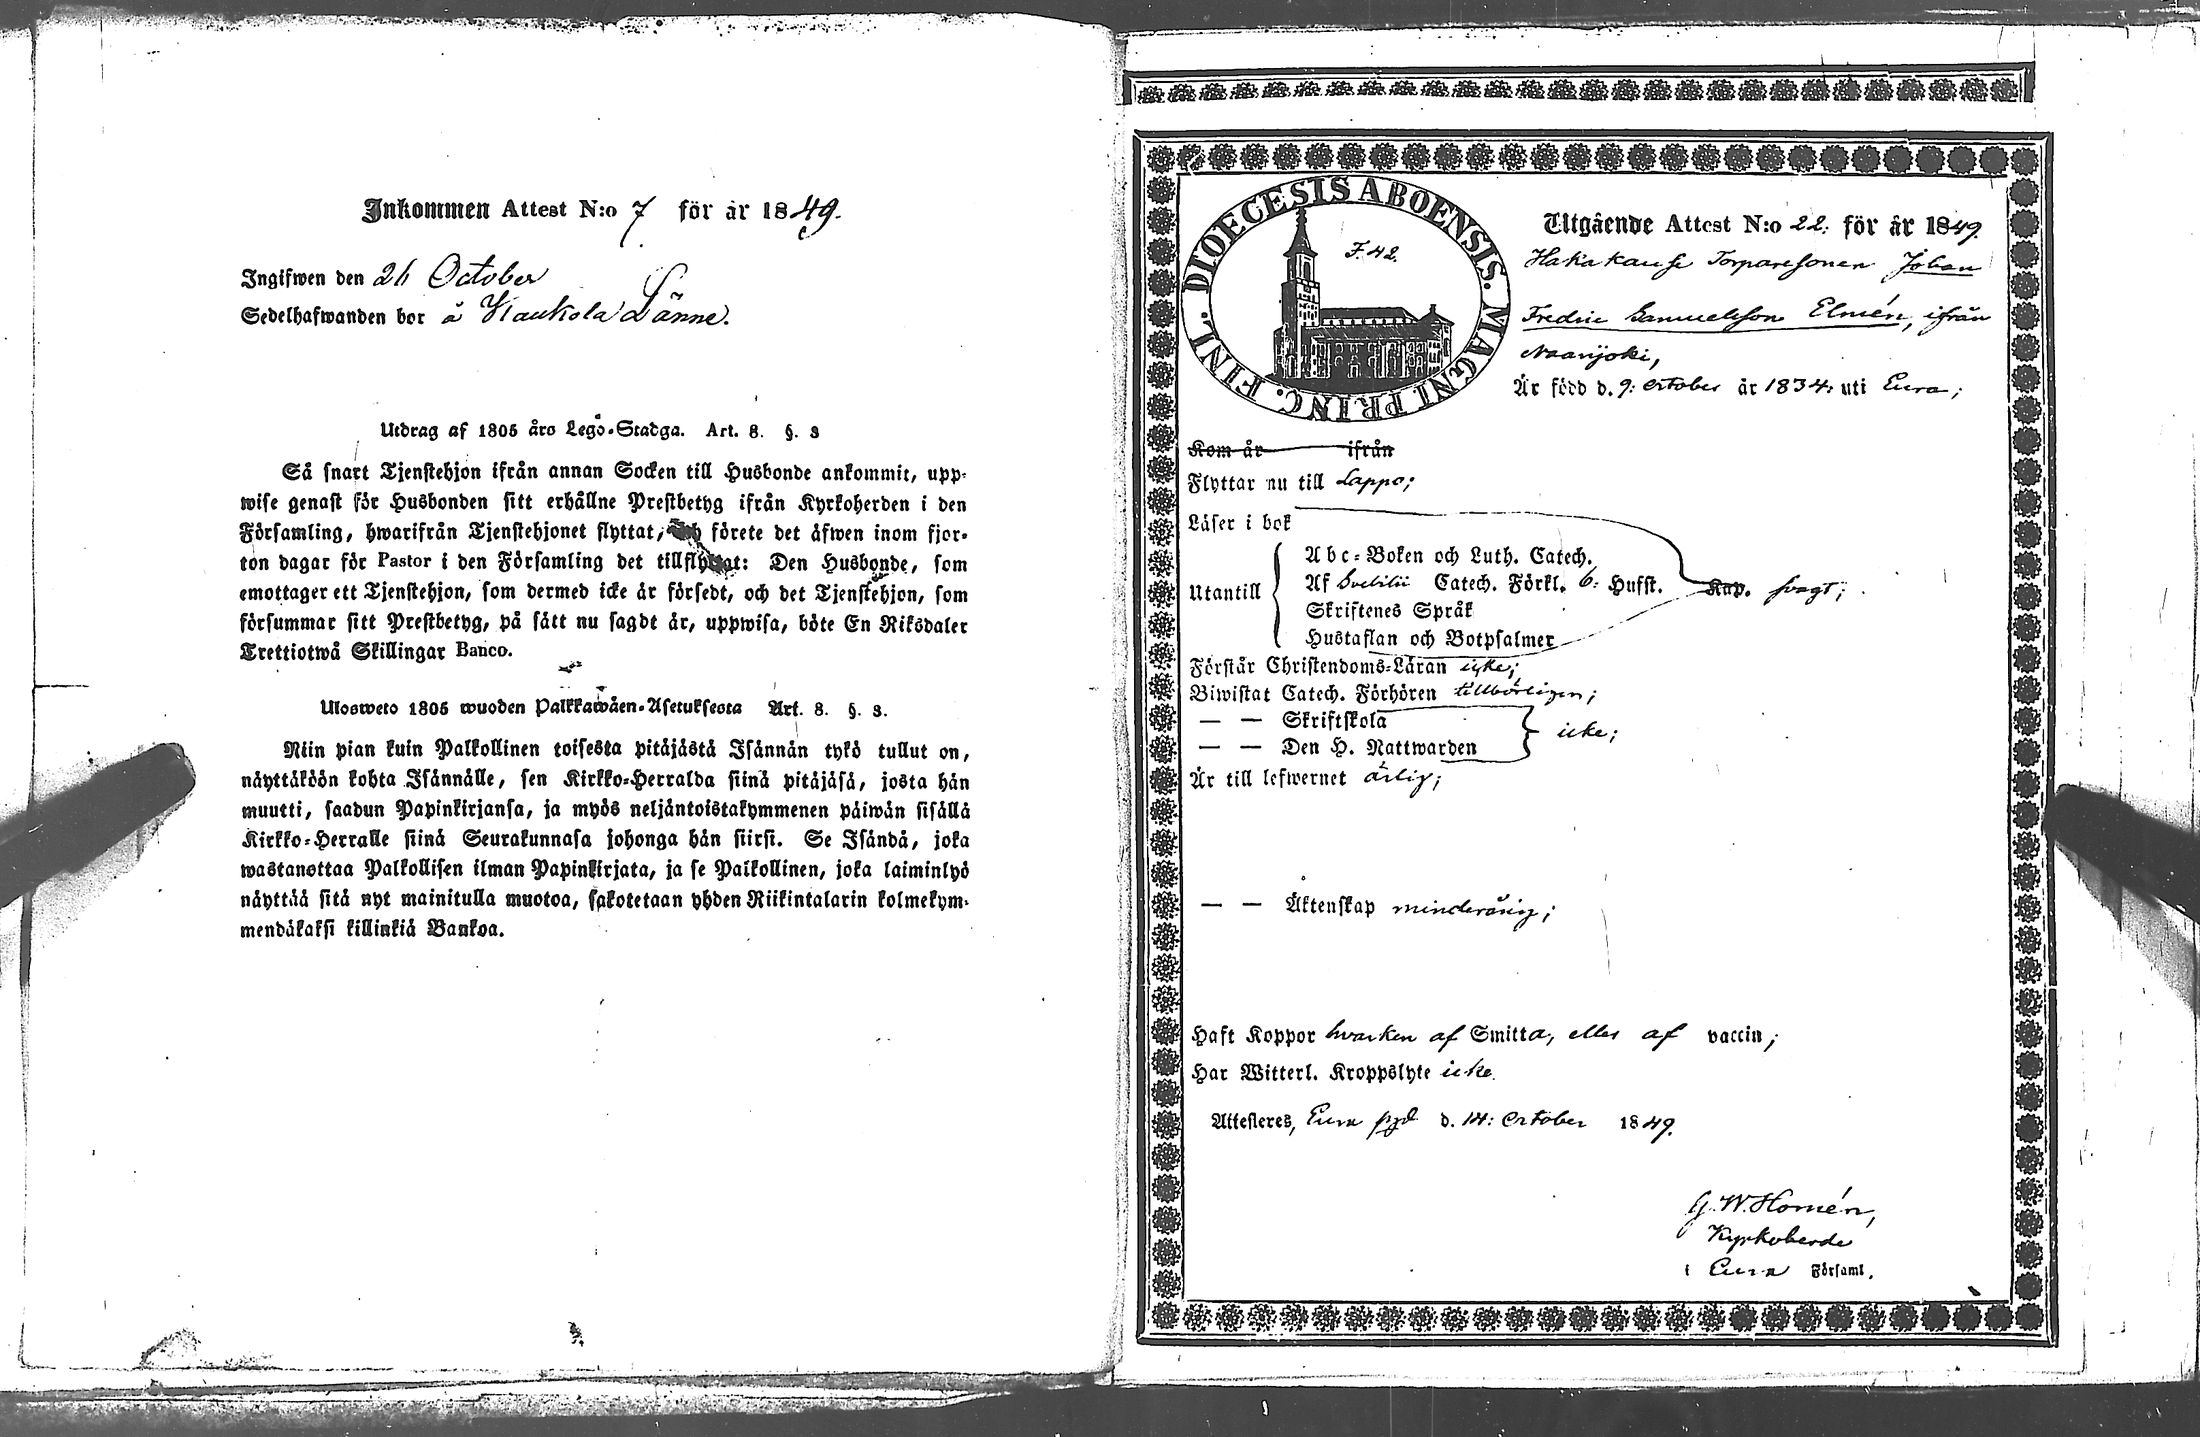 Inkommen Attest N:o 7 för år 1849.
Ingifwen den 26 October
Sedelhafwanden bor å Haukola Länne.
Utdrag af 1805 års Lego-Stadga. Art. 8. §. 3
Så snart Tjenstehjon ifrån annan Socken till Husbonde ankommit, upp-
wise genast för Husbonden sitt erhållne Prestbetyg ifrån Kyrkoherden i den
Församling, hwarifrån Tjenstehjonet flyttat, och förete det äfwen inom fjor-
ton dagar för Pastor i den Församling det tillflyttat: Den Husbonde, som
emottager ett Tjenstehjon, som dermed icke är försedt, och det Tjenstehjon, som
försummar sitt Prestbetyg, på sätt nu sagdt är, uppwisa, böte En Riksdaler
Trettiotwå Skillingar Banco.
Ulosweto 1805 wuoden Palkkawäen-Asetuksesta Art. 8. §. 3.
Niin pian kuin Palkollinen toisesta pitäjästä Isännän tykö tullut on,
näyttäköön kohta Isännälle, sen Kirkko-Herralda siinä pitäjäsä, josta hän
muutti, saadun Papinkirjansa, ja myös neljäntoistakymmenen päiwän sisällä
Kirkko-Herralle siinä Seurakunnasa johonga hän siirsi. Se Isändä, joka
wastanottaa Palkollisen ilman Papinkirjata, ja se Palkollinen, joka laiminlyö
näyttää sitä nyt mainitulla muotoa, sakotetaan yhden Riikintalarin kolmekym-
mendäkaksi killinkiä Bankoa.
DIOECESIS ABOENSIS. MAGNI PRINC. FINL.
F. 42.
Utgående Attest N:o 22. för år 1849.
Torparesonen Johan
Fredric Samuelsson Elmén, ifrån
Naarijoki,
Är född d. 9: October år 1834. uti Eura;
Kom år ifrån
Flyttar nu till Lappo;
Läser i bok
Utantill
Abc-Boken och Luth. Catech.
Af Svebilii Catech. Förkl. 6: Hufst. Kap. svagt;
Skriftenes Språk
Hustaflan och Botpsalmer
Förstår Christendoms-Läran icke;
Biwistat Catech. Förhören tillbörligen;
— — Skriftskola
— — Den H. Nattwarden icke;
Är till lefwernet ärlig;
— — Äktenskap minderårig;
Haft Koppor hvarken af Smitta, eller af vaccin;
Har Witterl. Kroppslyte icke.
Attesteres, Eura pgd d. 14: October 1849.
G. W. Homén,
Kyrkoherde
i Eura Församl.